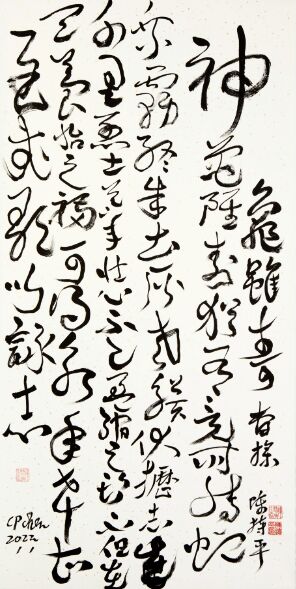 龜雖壽 曹操
陳持平
神龜雖壽猶有竟時騰蛇
乘霧終成土灰老驥伏櫪志在
千里烈士暮年壯心不已盈縮之期不但在
天養怡之福可得永年幸甚
至哉歌以詠志
CP Chen
2022.
11